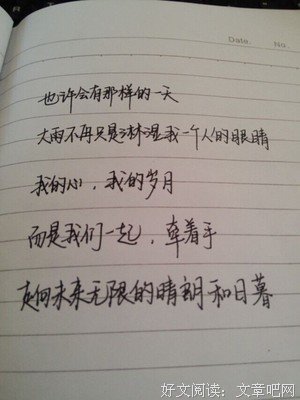 Date.    No.
也许会有那样的一天
大雨不再只是淋湿我一个人的眼睛
我的心，我的岁月
而是我们一起，牵着手
走向未来无限的晴朗和日暮
好文阅读：文章吧网